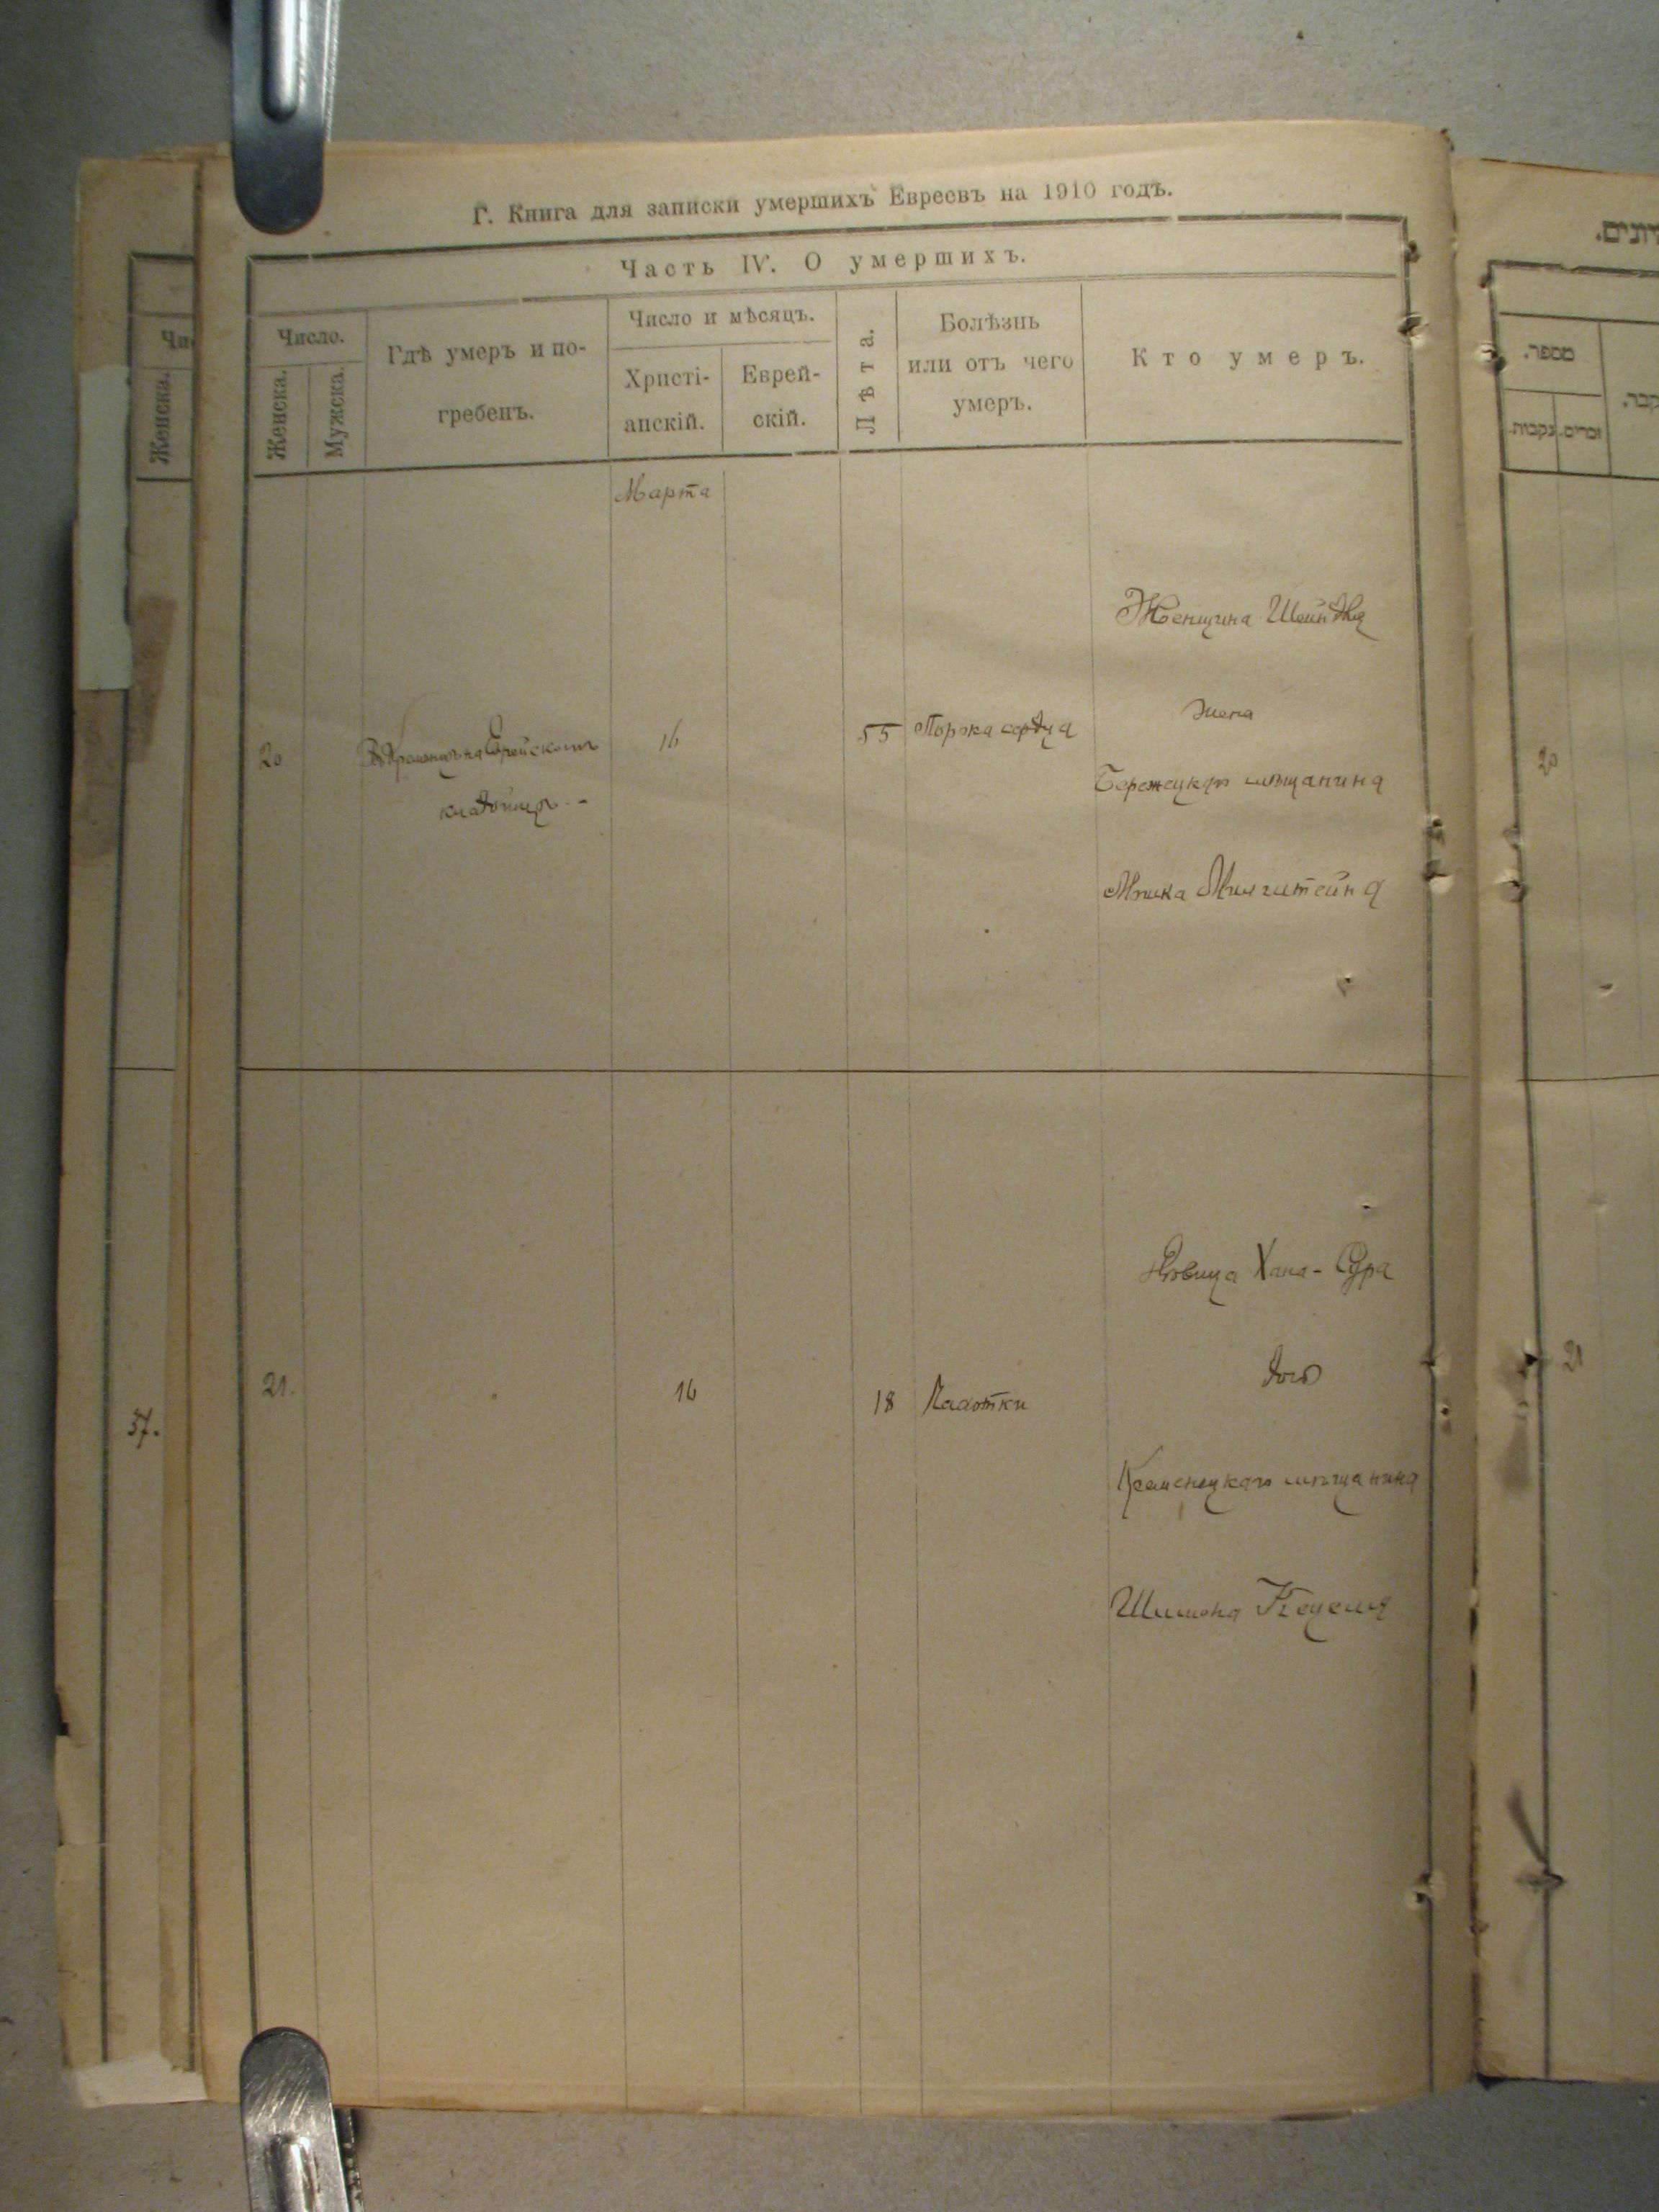 Г. Книга для записки умершихъ Евреевъ на 1910 годъ.
Часть IV. О умершихъ.
Число.
Женска.
Мужска.
Гдѣ умеръ и по-
гребенъ.
Число и мѣсяцъ.
Христі-
анскій.
Еврей-
скій.
Лѣта.
Болѣзнь
или отъ чего
умеръ.
Кто умеръ.
Марта
20
Еврейскомъ
кладбищѣ
16
55
Порока сердца
Женщина Шейндля
жена
Бережецкаго мѣщанина
21.
16
18
Чахотки
Дѣвица Хана-Сура
дочь
Кременецкаго мѣщанина
Шимона
37.
Чи
Женска.
מספר.
זכרים.
נקבות.
20
21